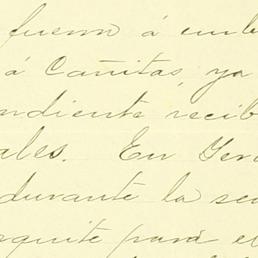 fueron á emb
á Cañitas, ya
ndiente recib
ales. En Gen
durante la se
equite para e